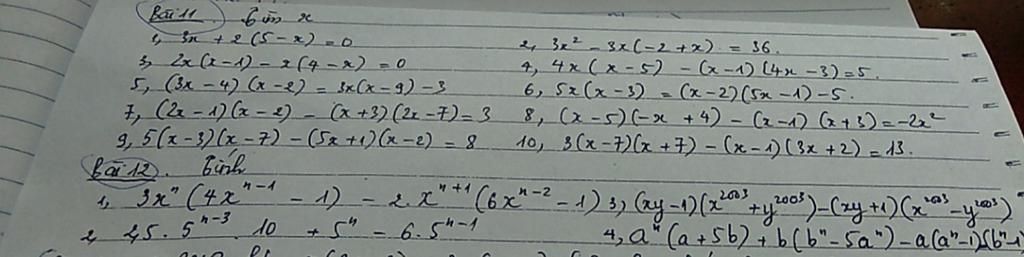 Bài 11. Tìm x
1, 3x + 2(5-x) = 0 2, 3x² - 3x(-2+x) = 36.
3, 2x(x-1) - x(4-x) = 0 4, 4x(x-5) - (x-1)(4x-3) = 5.
5, (3x-4)(x-2) = 3x(x-9) - 3 6, 5x(x-3) = (x-2)(5x-1) - 5.
7, (2x-1)(x-2) - (x+3)(2x-7) = 3 8, (x-5)(-x+4) - (x-1)(x+3) = -2x²
9, 5(x-3)(x-7) - (5x+1)(x-2) = 8 10, 3(x-7)(x+7) - (x-1)(3x+2) = 13.
Bài 12. Tính
1, 3xⁿ(4xⁿ⁻¹ - 1) - 2.xⁿ⁺¹(6xⁿ⁻² - 1) 3, (xy-1)(x²⁰⁰³+y²⁰⁰³) - (xy+1)(x²⁰⁰³-y²⁰⁰³)
2, 25.5ⁿ⁻³ 10 + 5ⁿ - 6.5ⁿ⁻¹ 4, aⁿ(a+5b) + b(bⁿ-5aⁿ) - a(aⁿ-1)